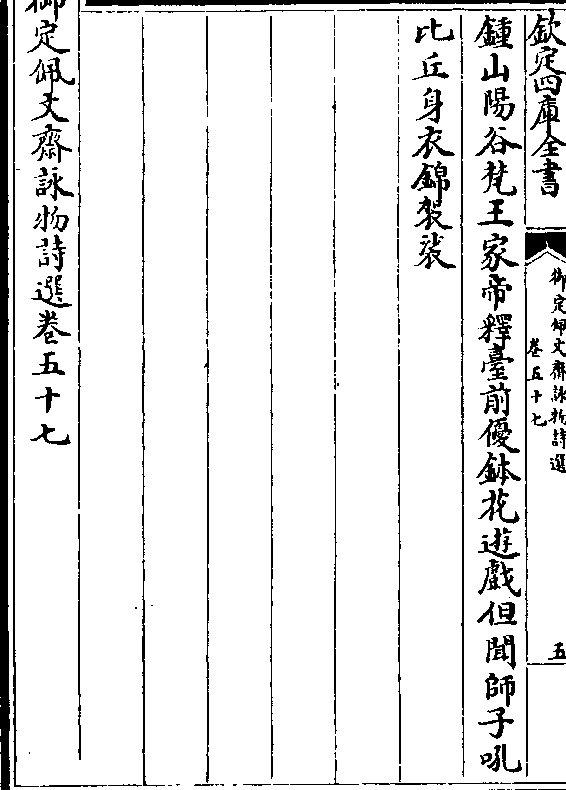 欽定四庫全書
御定佩文齋詠物詩選
卷五十七
五
鍾山陽谷梵王家帝釋臺前優鉢花遊戲但聞師子吼
比丘身衣錦袈裟
御定佩文齋詠物詩選卷五十七